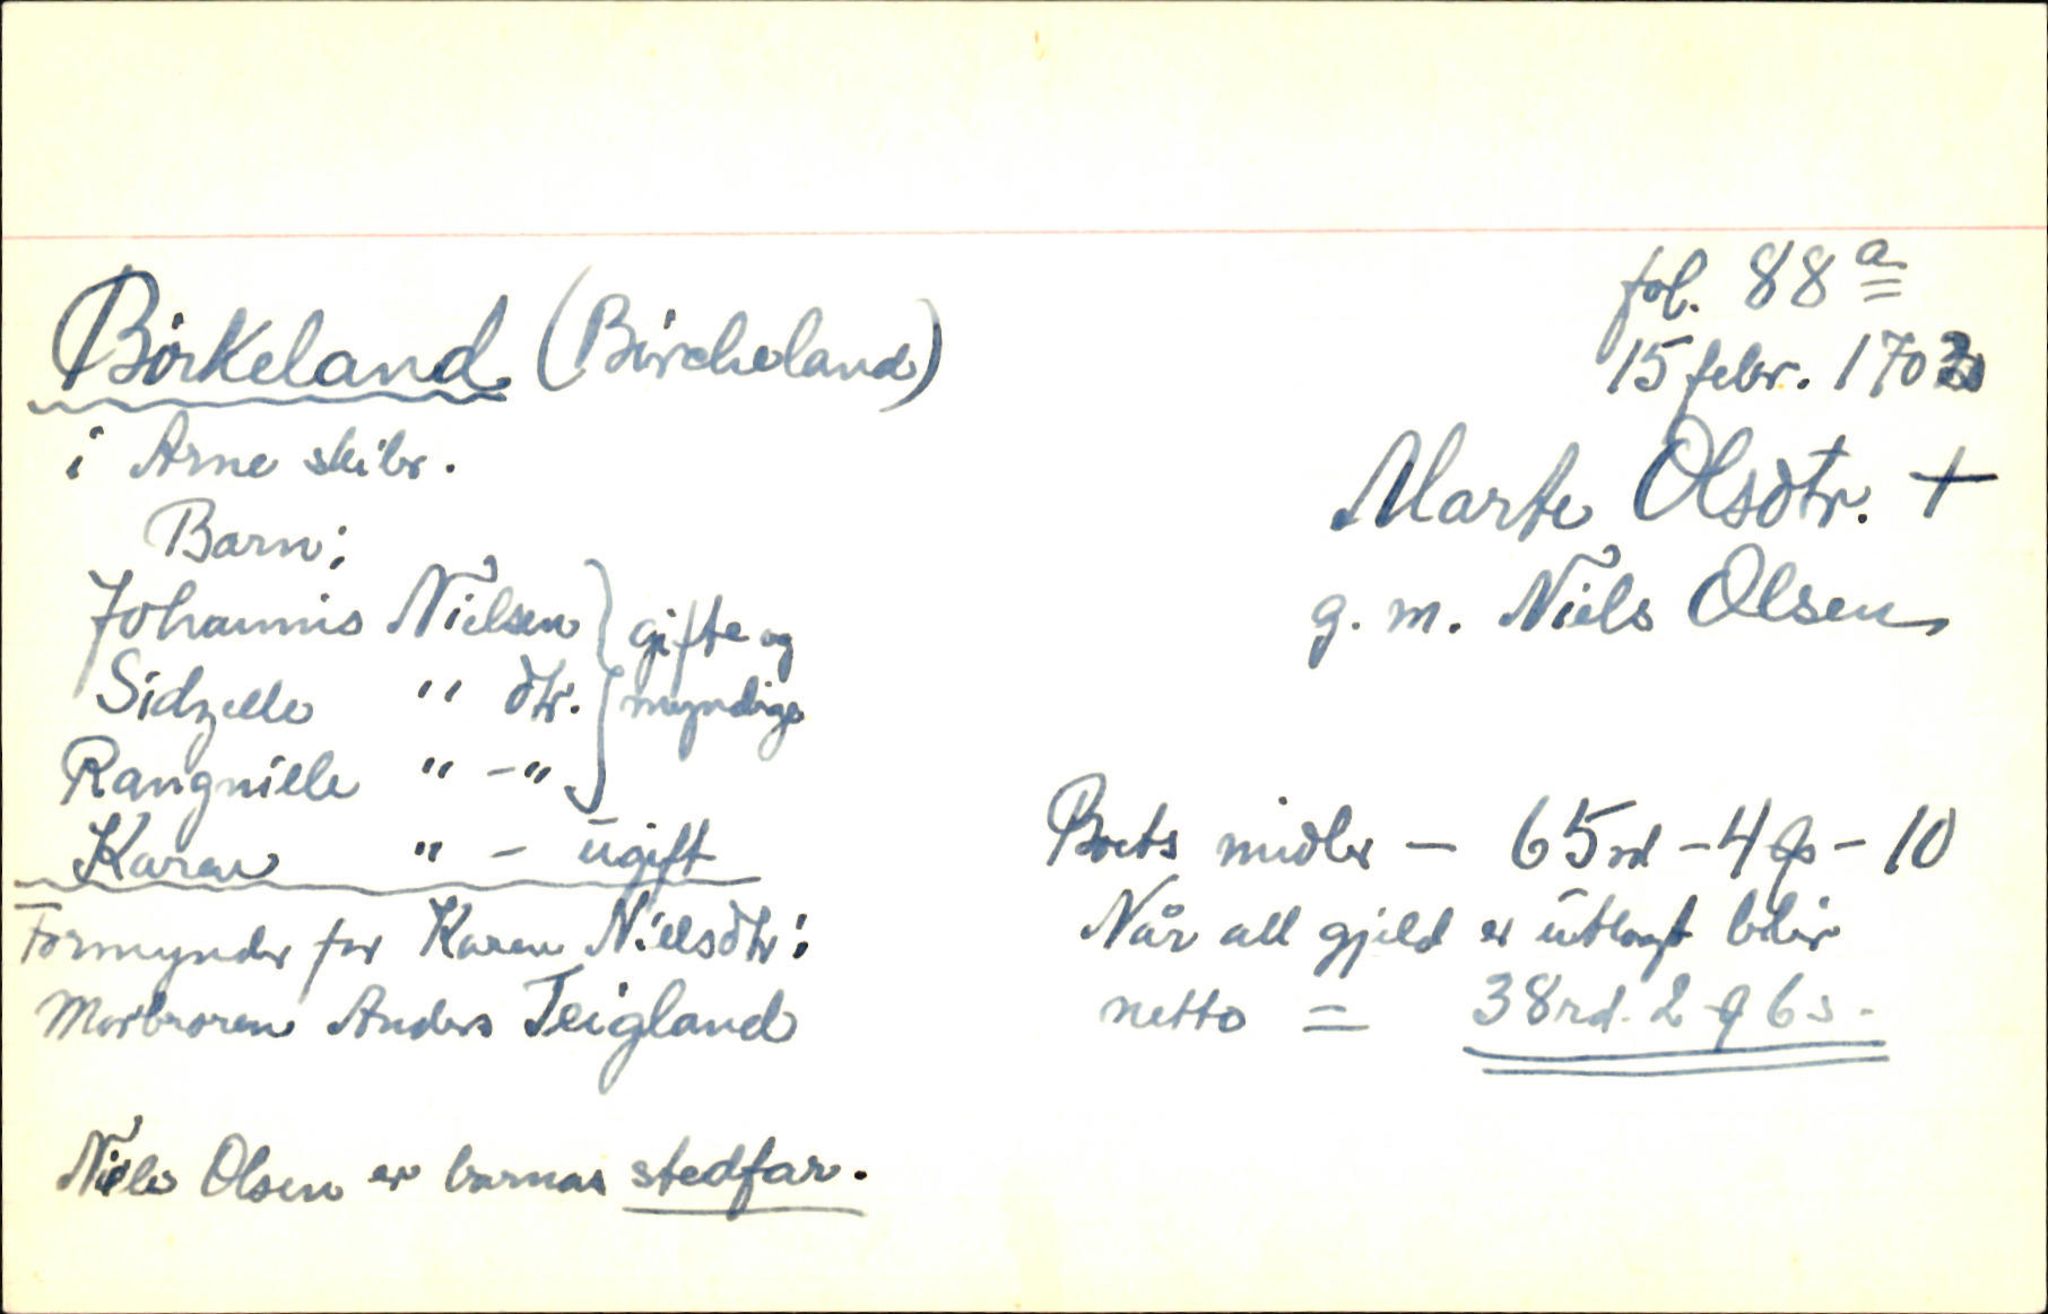 fol. 88 a
Birkeland (Bircheland)
15 febr. 1703
i Arne skibr.
Marte Olsdtr. +
g. m. Niels Olsen
Barn:
Johannis Nielsen } gifte og
Sidzelle " dtr. } myndige
Rangnille " - " }
Karen " - ugift
Formynder for Karen Nielsdtr:
Morbroren Anders Teigland
Boets midler - 65 rd - 4 - 10
Når all gjeld er utlagt blir
netto = 38 rd. 2 6 s.
Niels Olsen er barnas stedfar.